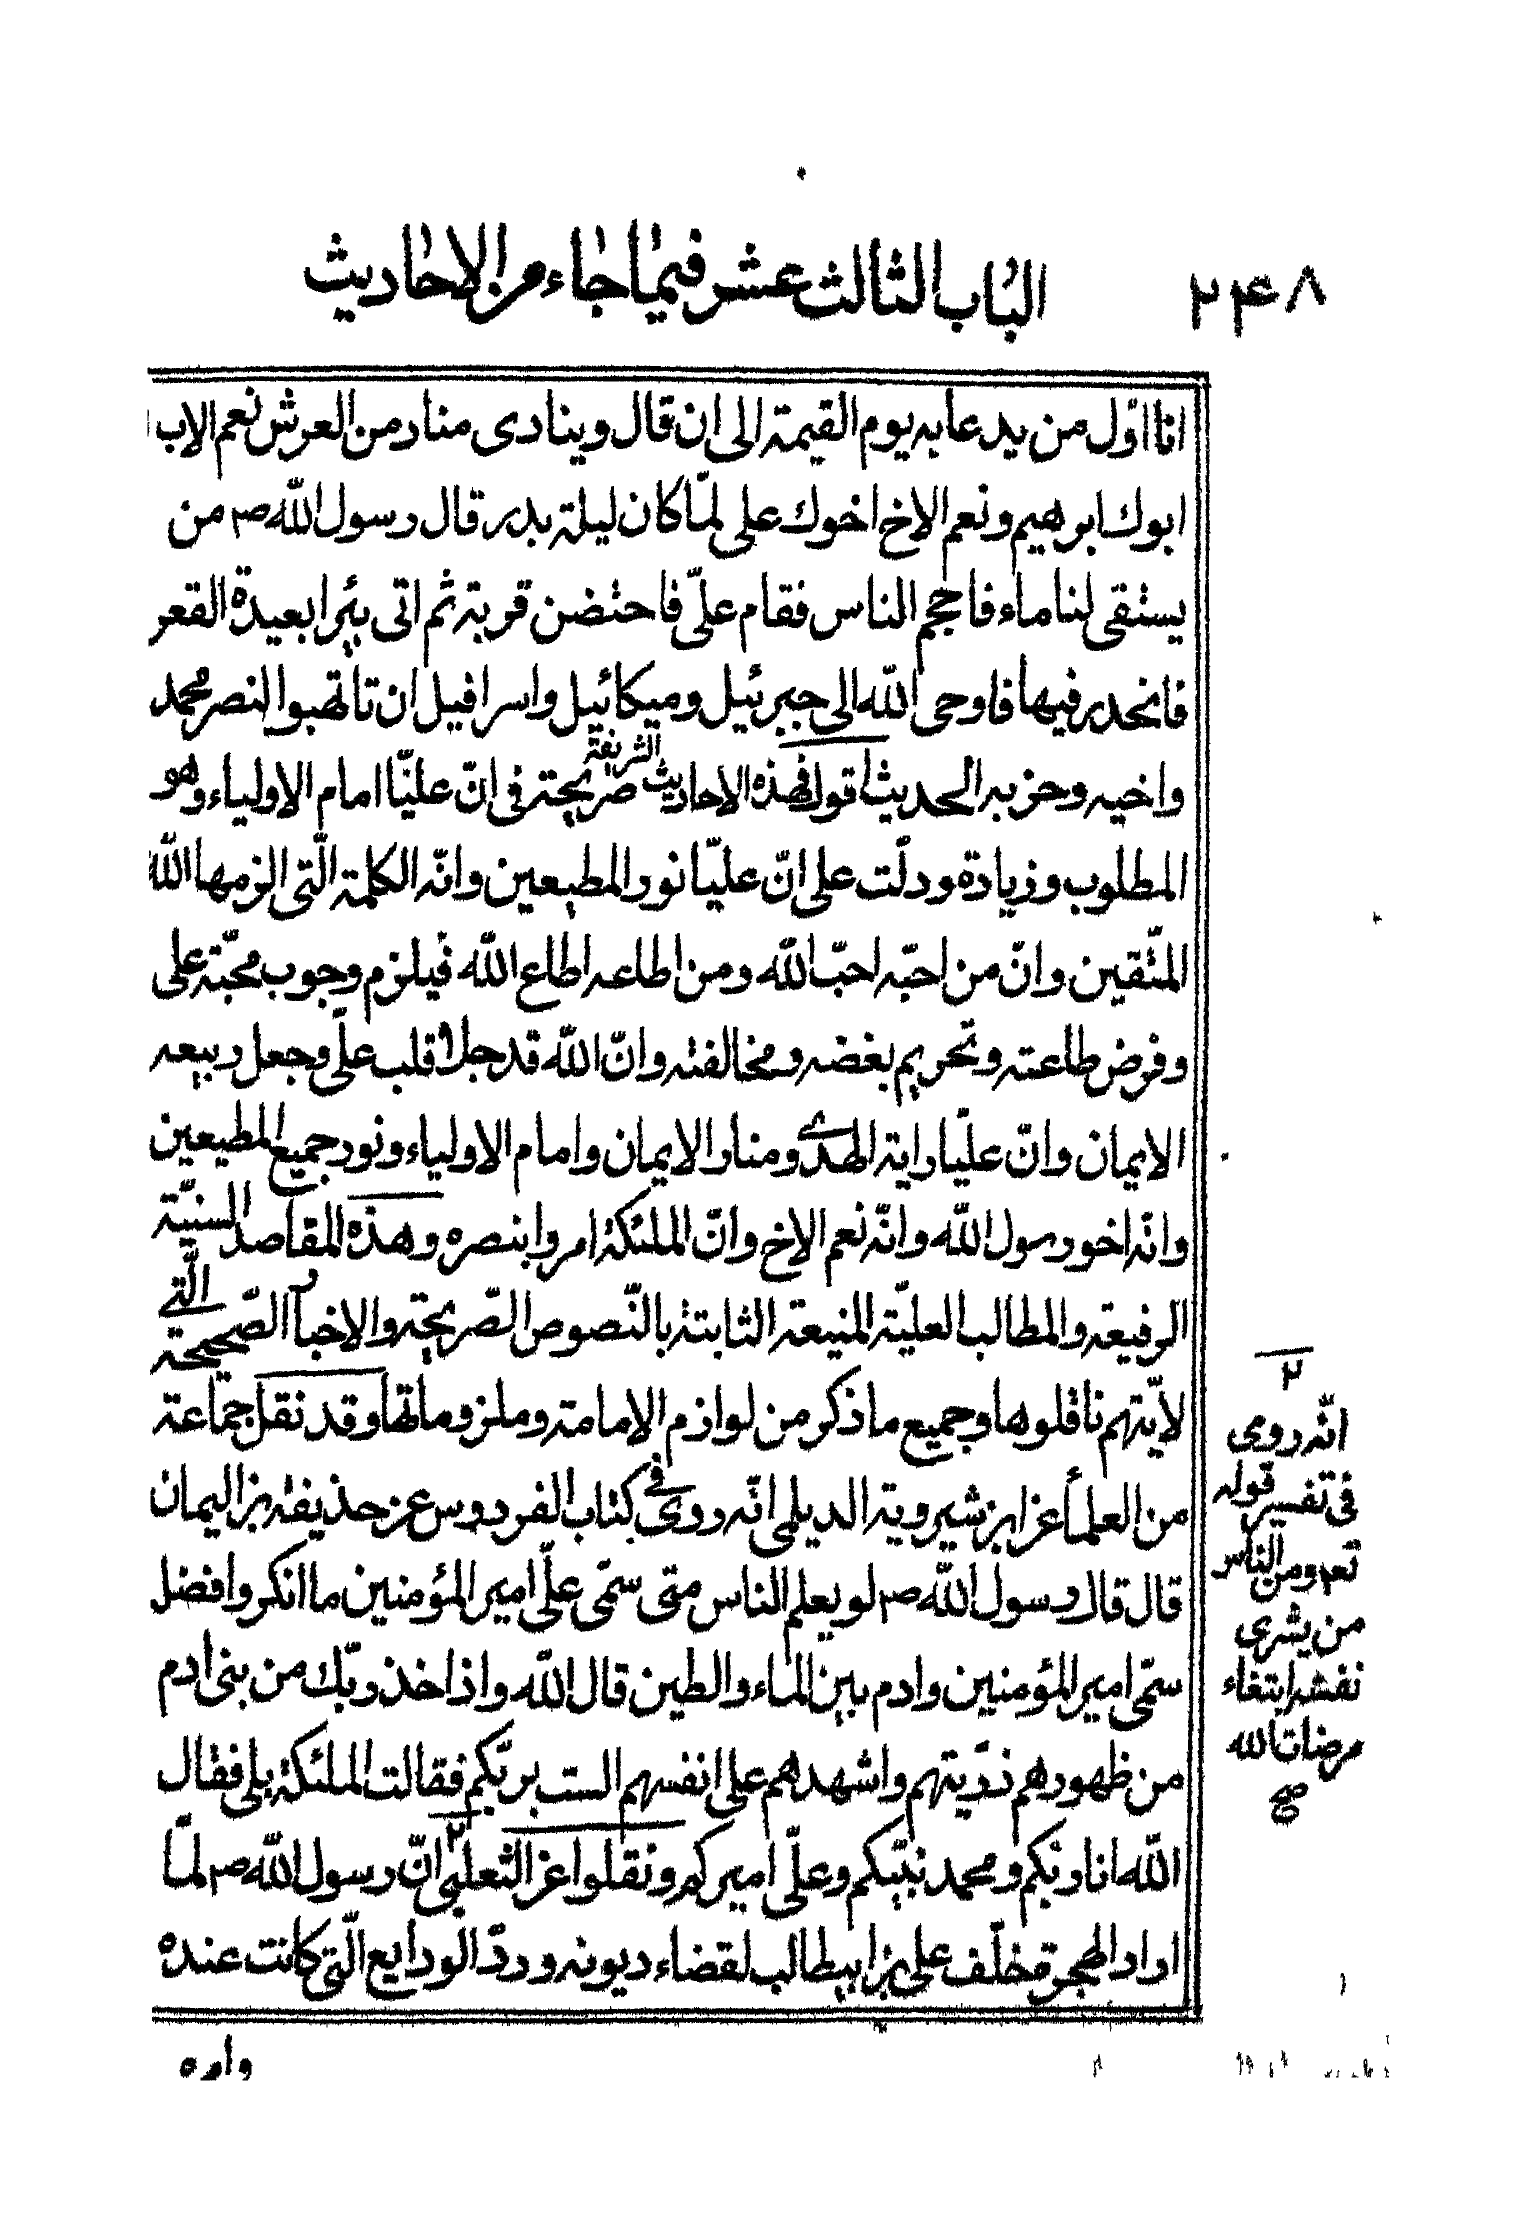 ٢٤٨
الباب الثالث عشر فيما جاء من الاحاديث
انا اوّل من يدعا به يوم القيمة الى ان قال وينادى مناد من العرش نعم الاب
ابوك ابرهيم ونعم الاخ اخوك على لمّا كان ليلة بدر قال رسول اللّه ص من
يستقى لنا ماء فاحجم الناس فقام علىّ فاحتضن قربة ثم اتى بئرا بعيدة القعر
فانحدر فيها فاوحى اللّه الى جبرئيل وميكائيل واسرافيل ان تاهّبوا لنصر محمد
واخيه وحزبه الحديث اقول فهذه الاحاديث الشريفة صريحة فى انّ عليّا امام الاولياء وهو
المطلوب وزيادة ودلّت على انّ عليّا نور المطيعين وانّه الكلمة الّتى الزمها اللّه
المتّقين وانّ من احبّه احبّ اللّه ومن اطاعه اطاع اللّه فيلزم وجوب محبّة على
وفرض طاعته وتحريم بغضه ومخالفته وانّ اللّه قد جلا قلب علىّ وجعل ربيعه
الايمان وانّ عليّا راية الهدى ومنار الايمان وامام الاولياء ونور جميع المطيعين
وانّه اخو رسول اللّه وانّه نعم الاخ وانّ الملئكة امروا بنصره وهذه المقاصد السنيّة
الرفيعة والمطالب العليّة المنيعة الثابتة بالنّصوص الصّريحة والاخبار الصّحيحة الّتى
لا يتهم ناقلوها وجميع ما ذكر من لوازم الامامة وملزوماتها وقد نقل جماعة
من العلماء عن ابن شيروية الديلمى انّه روى فى كتاب الفردوس عن حذيفة بن اليمان
قال قال رسول اللّه ص لو يعلم الناس متى سمّى علىّ امير المؤمنين ما انكروا فضل
سمّى امير المؤمنين وادم بين الماء والطين قال اللّه واذا خذ ربّك من بنى ادم
من ظهورهم ذرّيتهم واشهدهم على انفسهم الست بربّكم فقالت الملئكة بلى فقال
اللّه انا ربّكم ومحمد نبيّكم وعلىّ اميركم ونقلوا عن الثعلبى ٢ انّ رسول اللّه ص لمّا
اراد الهجرة خلّف على بن ابيطالب لقضاء ديونه وردّ الودايع الّتى كانت عنده
وامره
٢
انّه روى
فى تفسير قوله
تعم ومن الناس
من يشرى
نفسه ابتغاء
مرضات الله
صح